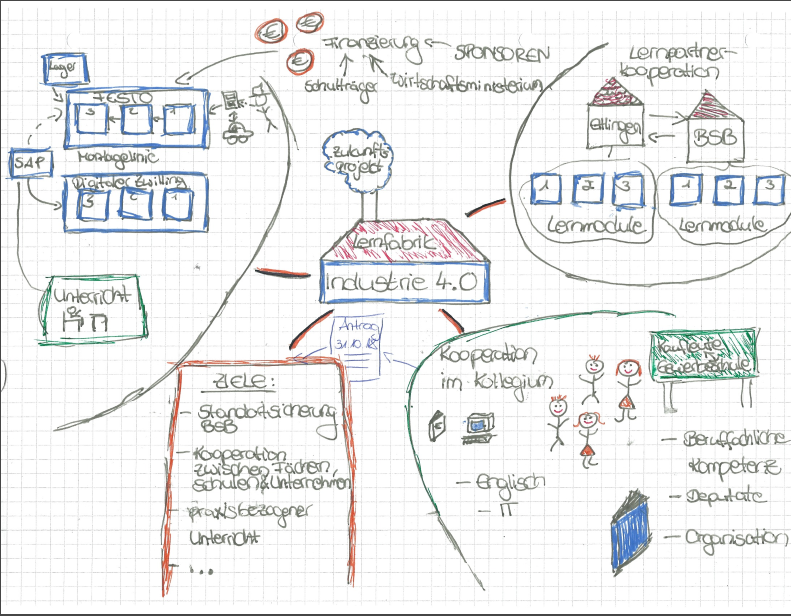 Finanzierung
SPONSOREN
Schulträger
Wirtschaftsministerium
Lager
FESTO
3 2 1
Montagelinie
SAP
Digitaler Zwilling
3 2 1
Unterricht
Zukunfts
projekt
Lernfabrik
Industrie 4.0
Lernpartner-
kooperation
Ettlingen
BSB
1 2 3
Lernmodule
1 2 3
Lernmodule
Antrag
31.10.18
ZIELE:
- Standortsicherung
BSB
- Kooperation
zwischen Fächern,
Schulen & Unternehmen
- praxisbezogener
Unterricht
- ...
Kooperation
im Kollegium
€
- Englisch
- IT
Kaufleute
Gewerbeschule
- Berufachliche
Kompetenz
- Deputate
- Organisation